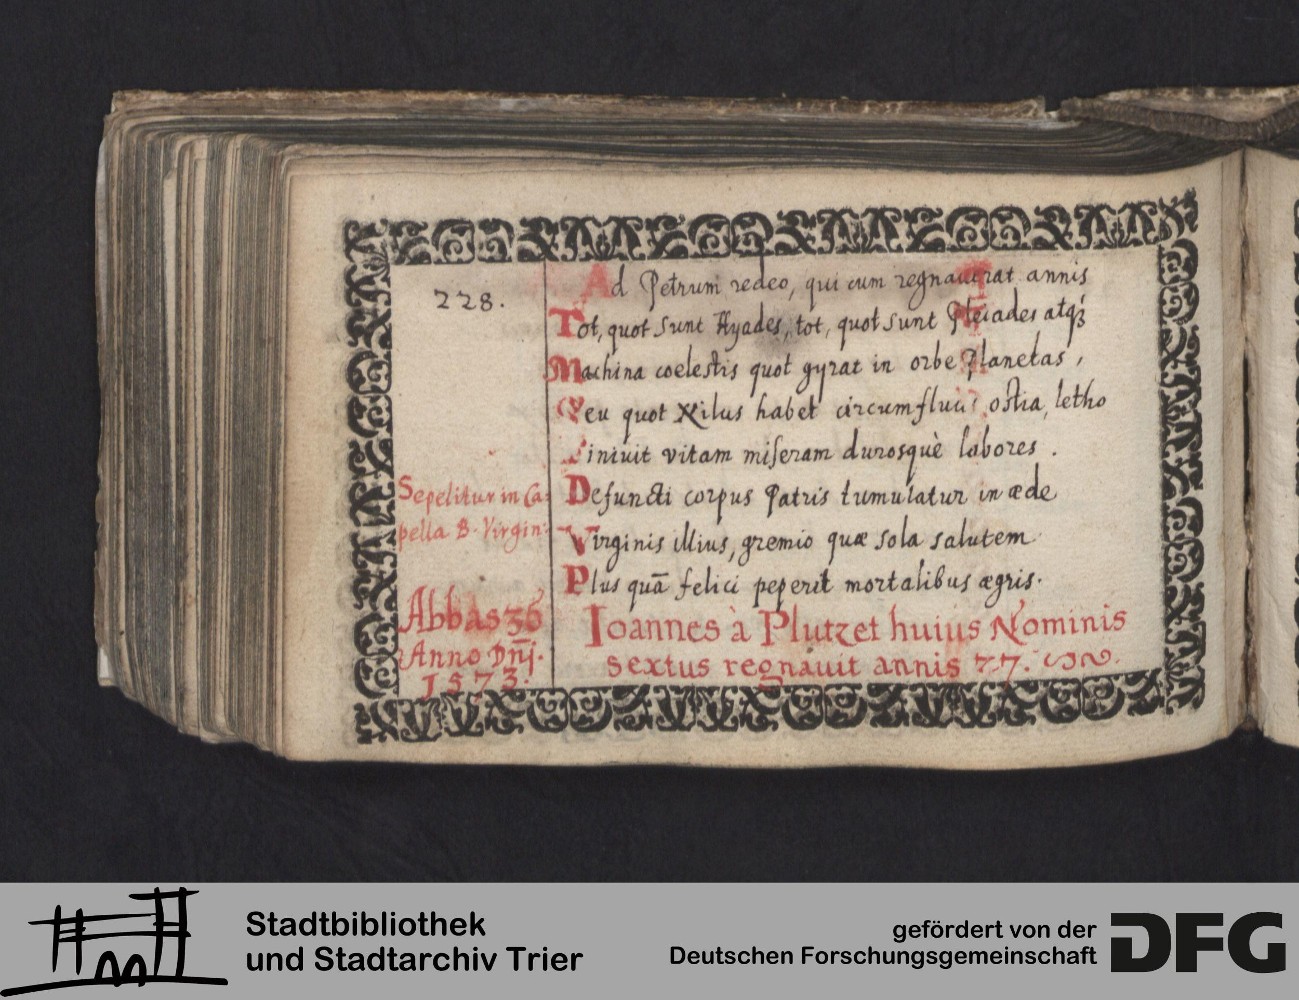 228.
Ad Petrum redeo, qui cum regnauerat annis
Tot, quot sunt Hyades, tot, quot sunt Pleiades atqꝫ
Machina coelestis quot gyrat in orbe Planetas,
Ceu quot Nilus habet circumfluus ostia, letho
Finiuit vitam miseram durosquè labores.
Defuncti corpus Patris tumulatur in æde
Virginis illius, gremio quæ sola salutem
Plus quā felici peperit mortalibus ægris.
Sepelitur in Ca:
pella B. Virgin:
Abbas 36
Anno Dn̄j.
1573.
Ioannes à Plutzet huius Nominis
sextus regnauit annis 27.
Stadtbibliothek
und Stadtarchiv Trier
gefördert von der
Deutschen Forschungsgemeinschaft
DFG